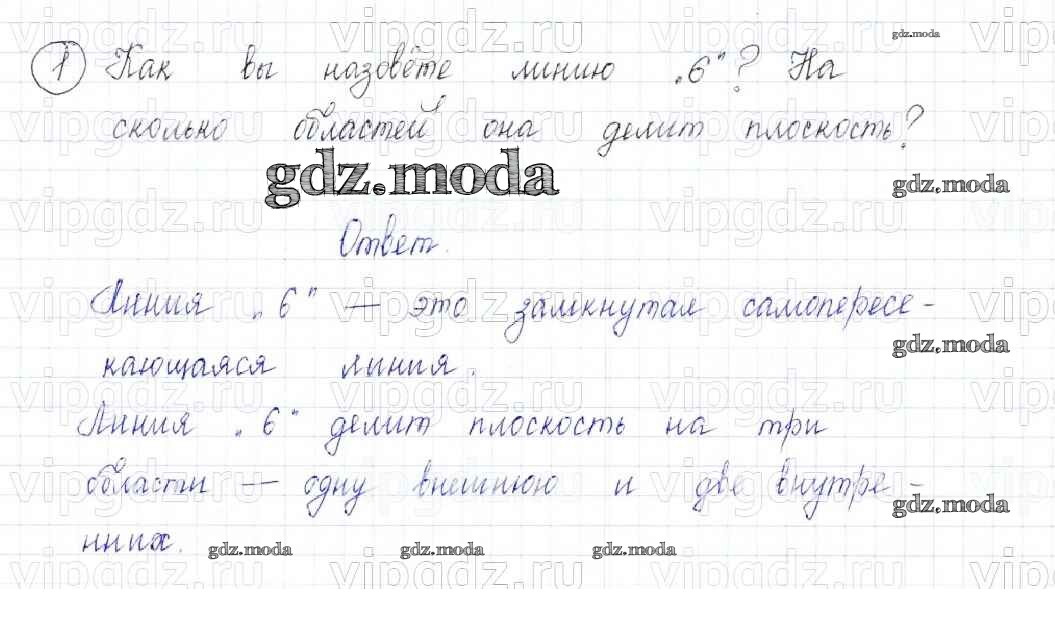 gdz.moda
1 Как вы назовёте линию „6"? На
сколько областей она делит плоскость?
gdz.moda
gdz.moda
Ответ.
Линия „6" — это замкнутая самопересе-
gdz.moda
кающаяся линия.
Линия „6" делит плоскость на три
области — одну внешнюю и две внутре-
gdz.moda
нних.
gdz.moda gdz.moda gdz.moda
vipgdz.ru